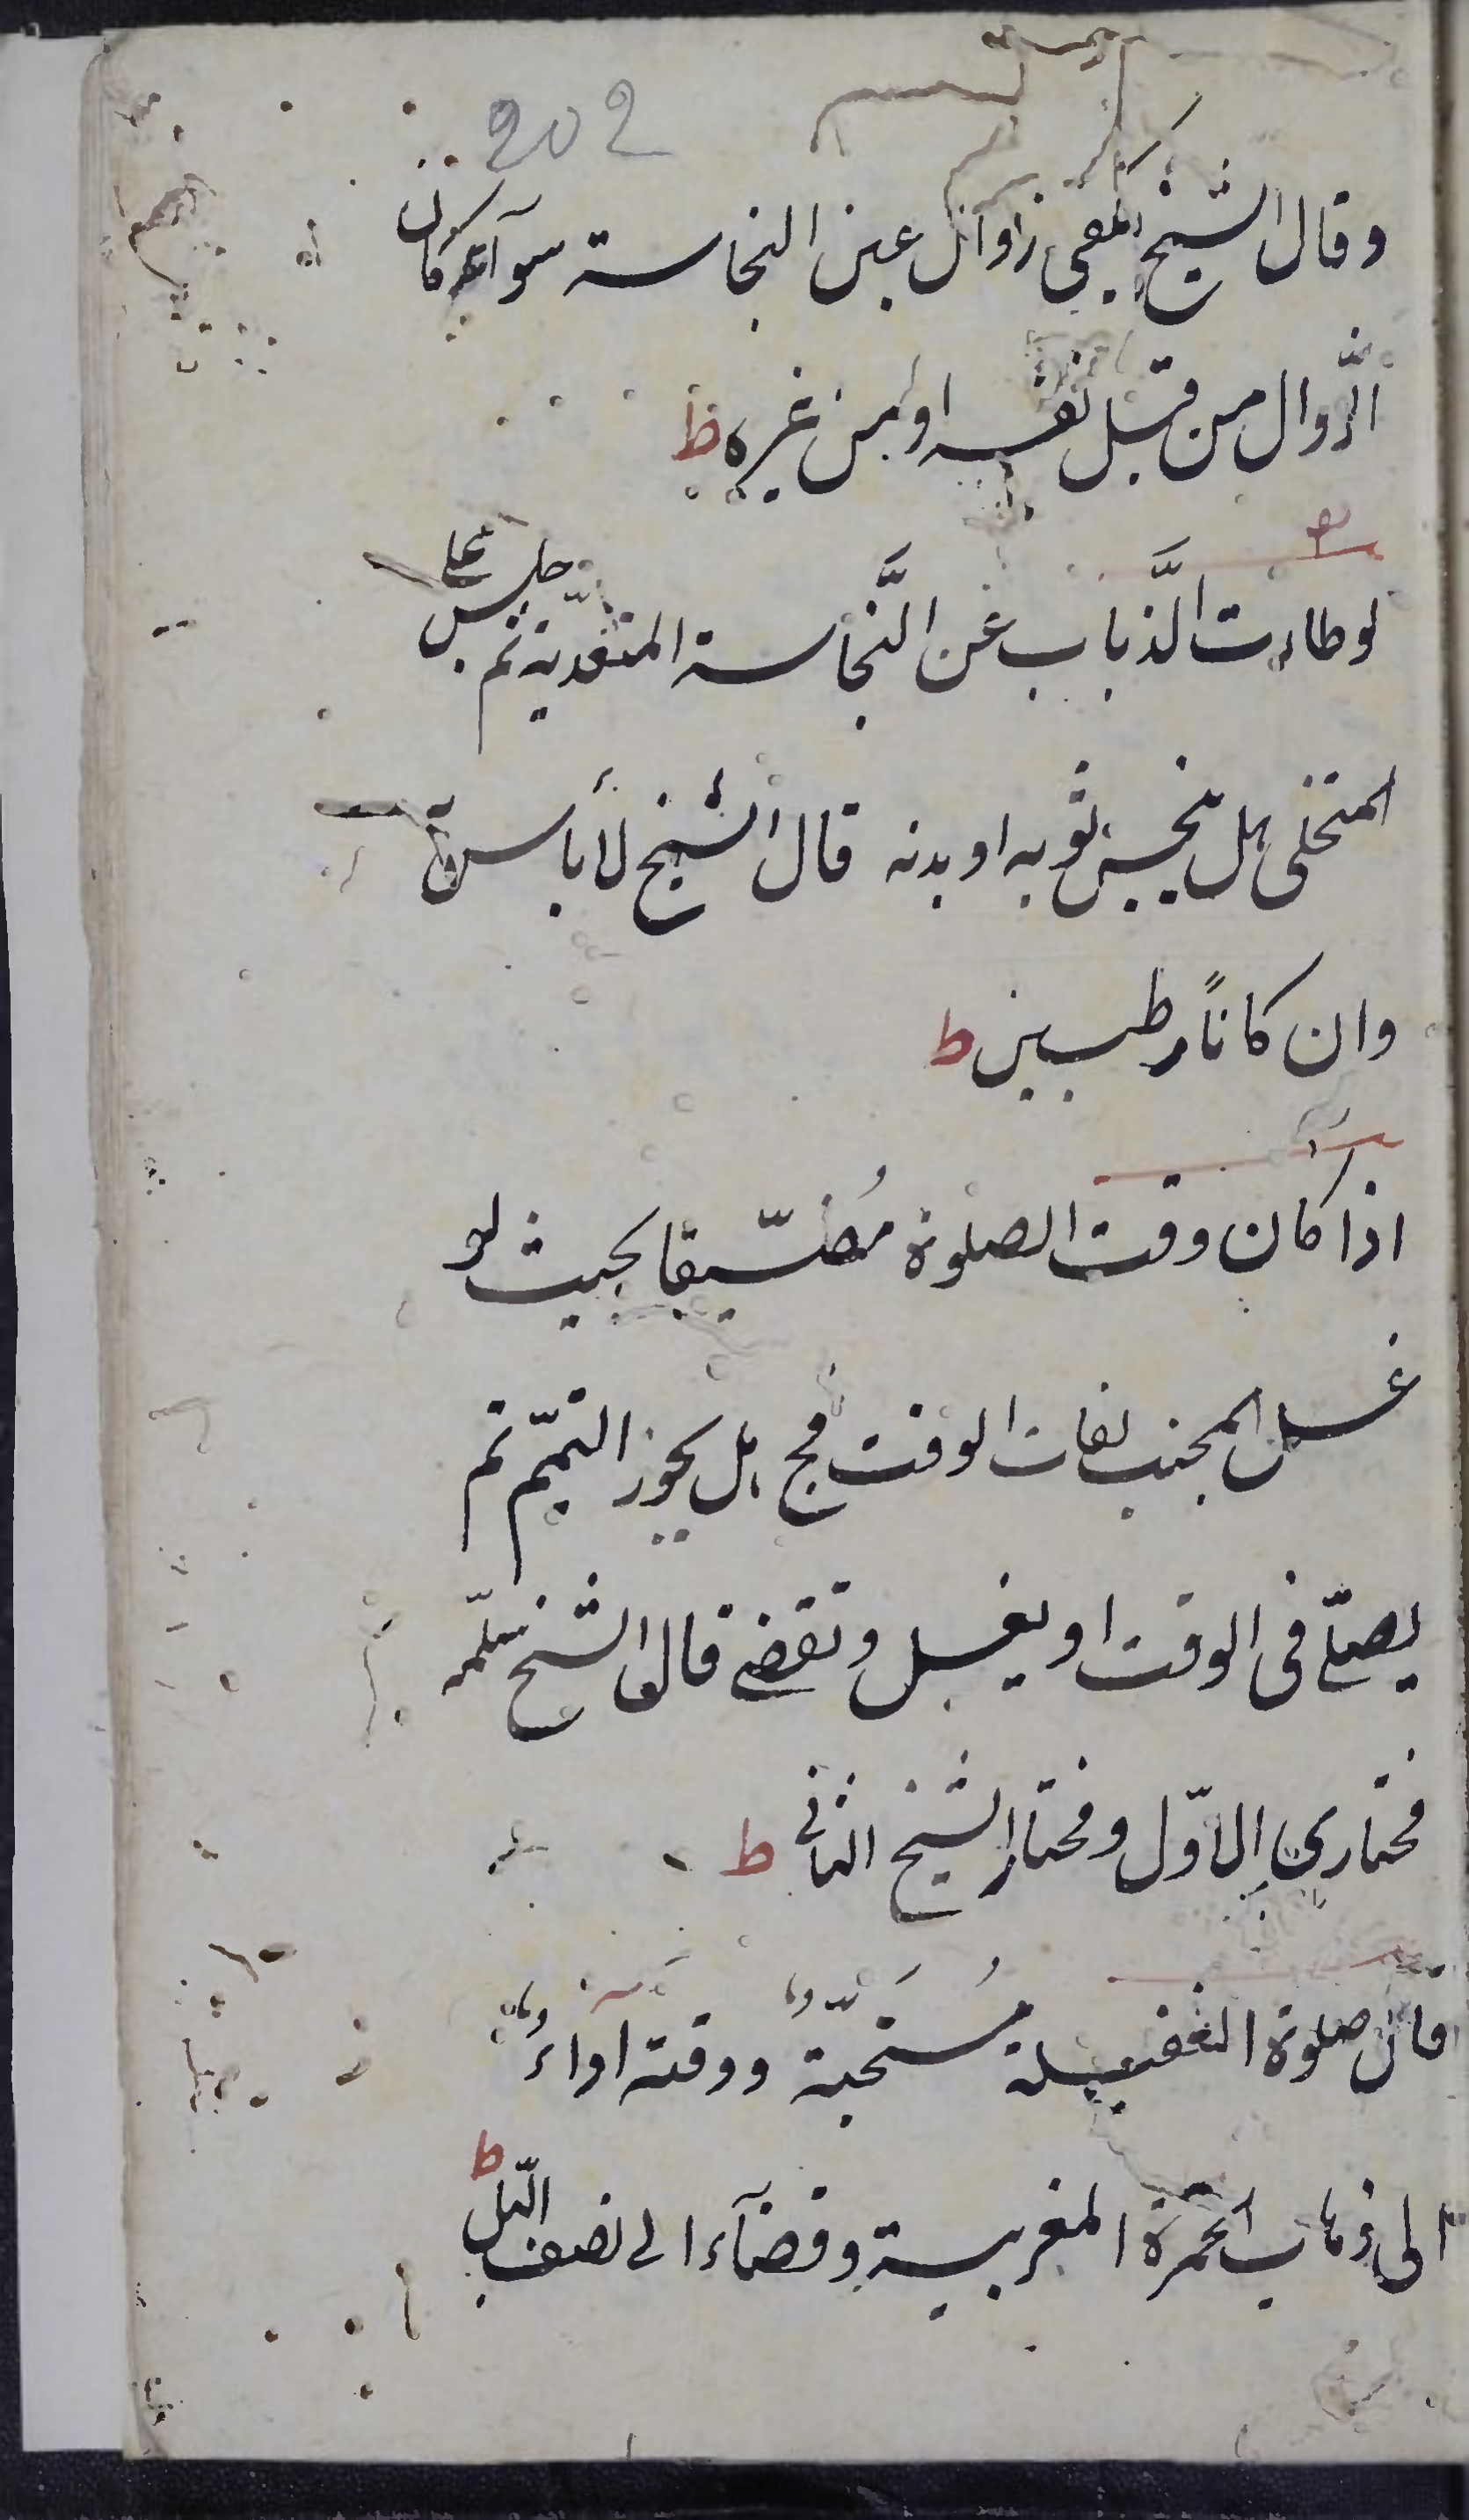 202
وقال الشيخ يكفى زوال عين النجاسة سوآء كان
الزّوال من قبل نفسه او من غيره ط
لو طارت الذَّباب عن النَّجاسة المتعدّية ثم جلس على
المتخلى هل ينجس ثوبه او بدنه قال الشيخ لا بأس
وان كانا رطبين ط
اذا كان وقت الصلوة مُضيّقا بحيث لو
غسل الجنب لفات الوقت فح هل يجوز التيمّم ثم
يصلّى فى الوقت او يغسل وتقضى قال الشيخ سلّمه
فمختارى الاوّل ومختار الشيخ الثانى ط
قال صلوة الغفيلة مُستحبّة ووقته اداءً
الى ذهاب الحمرة المغربية وقضآء الى نصف اللّيل ط